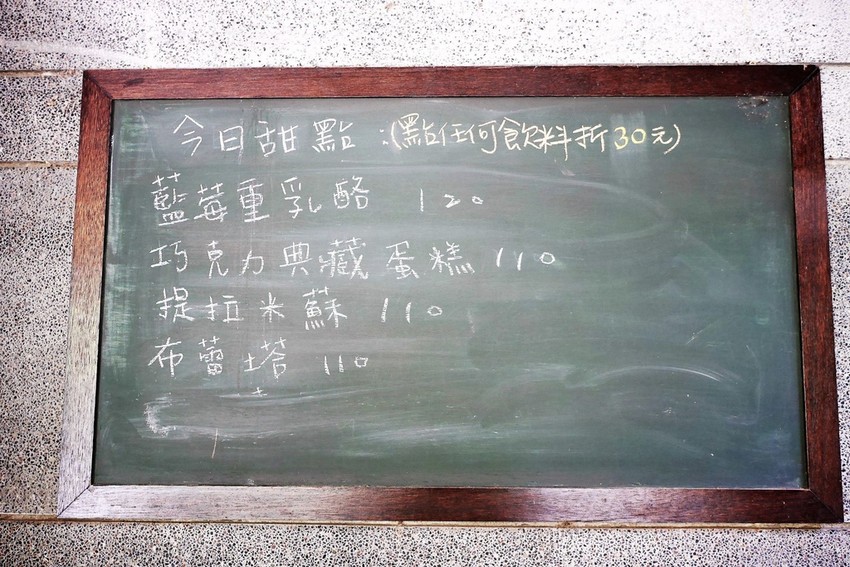 今日甜點:(點任何飲料折30元)
藍莓重乳酪 120
巧克力典藏蛋糕 110
提拉米蘇 110
布蕾塔 110